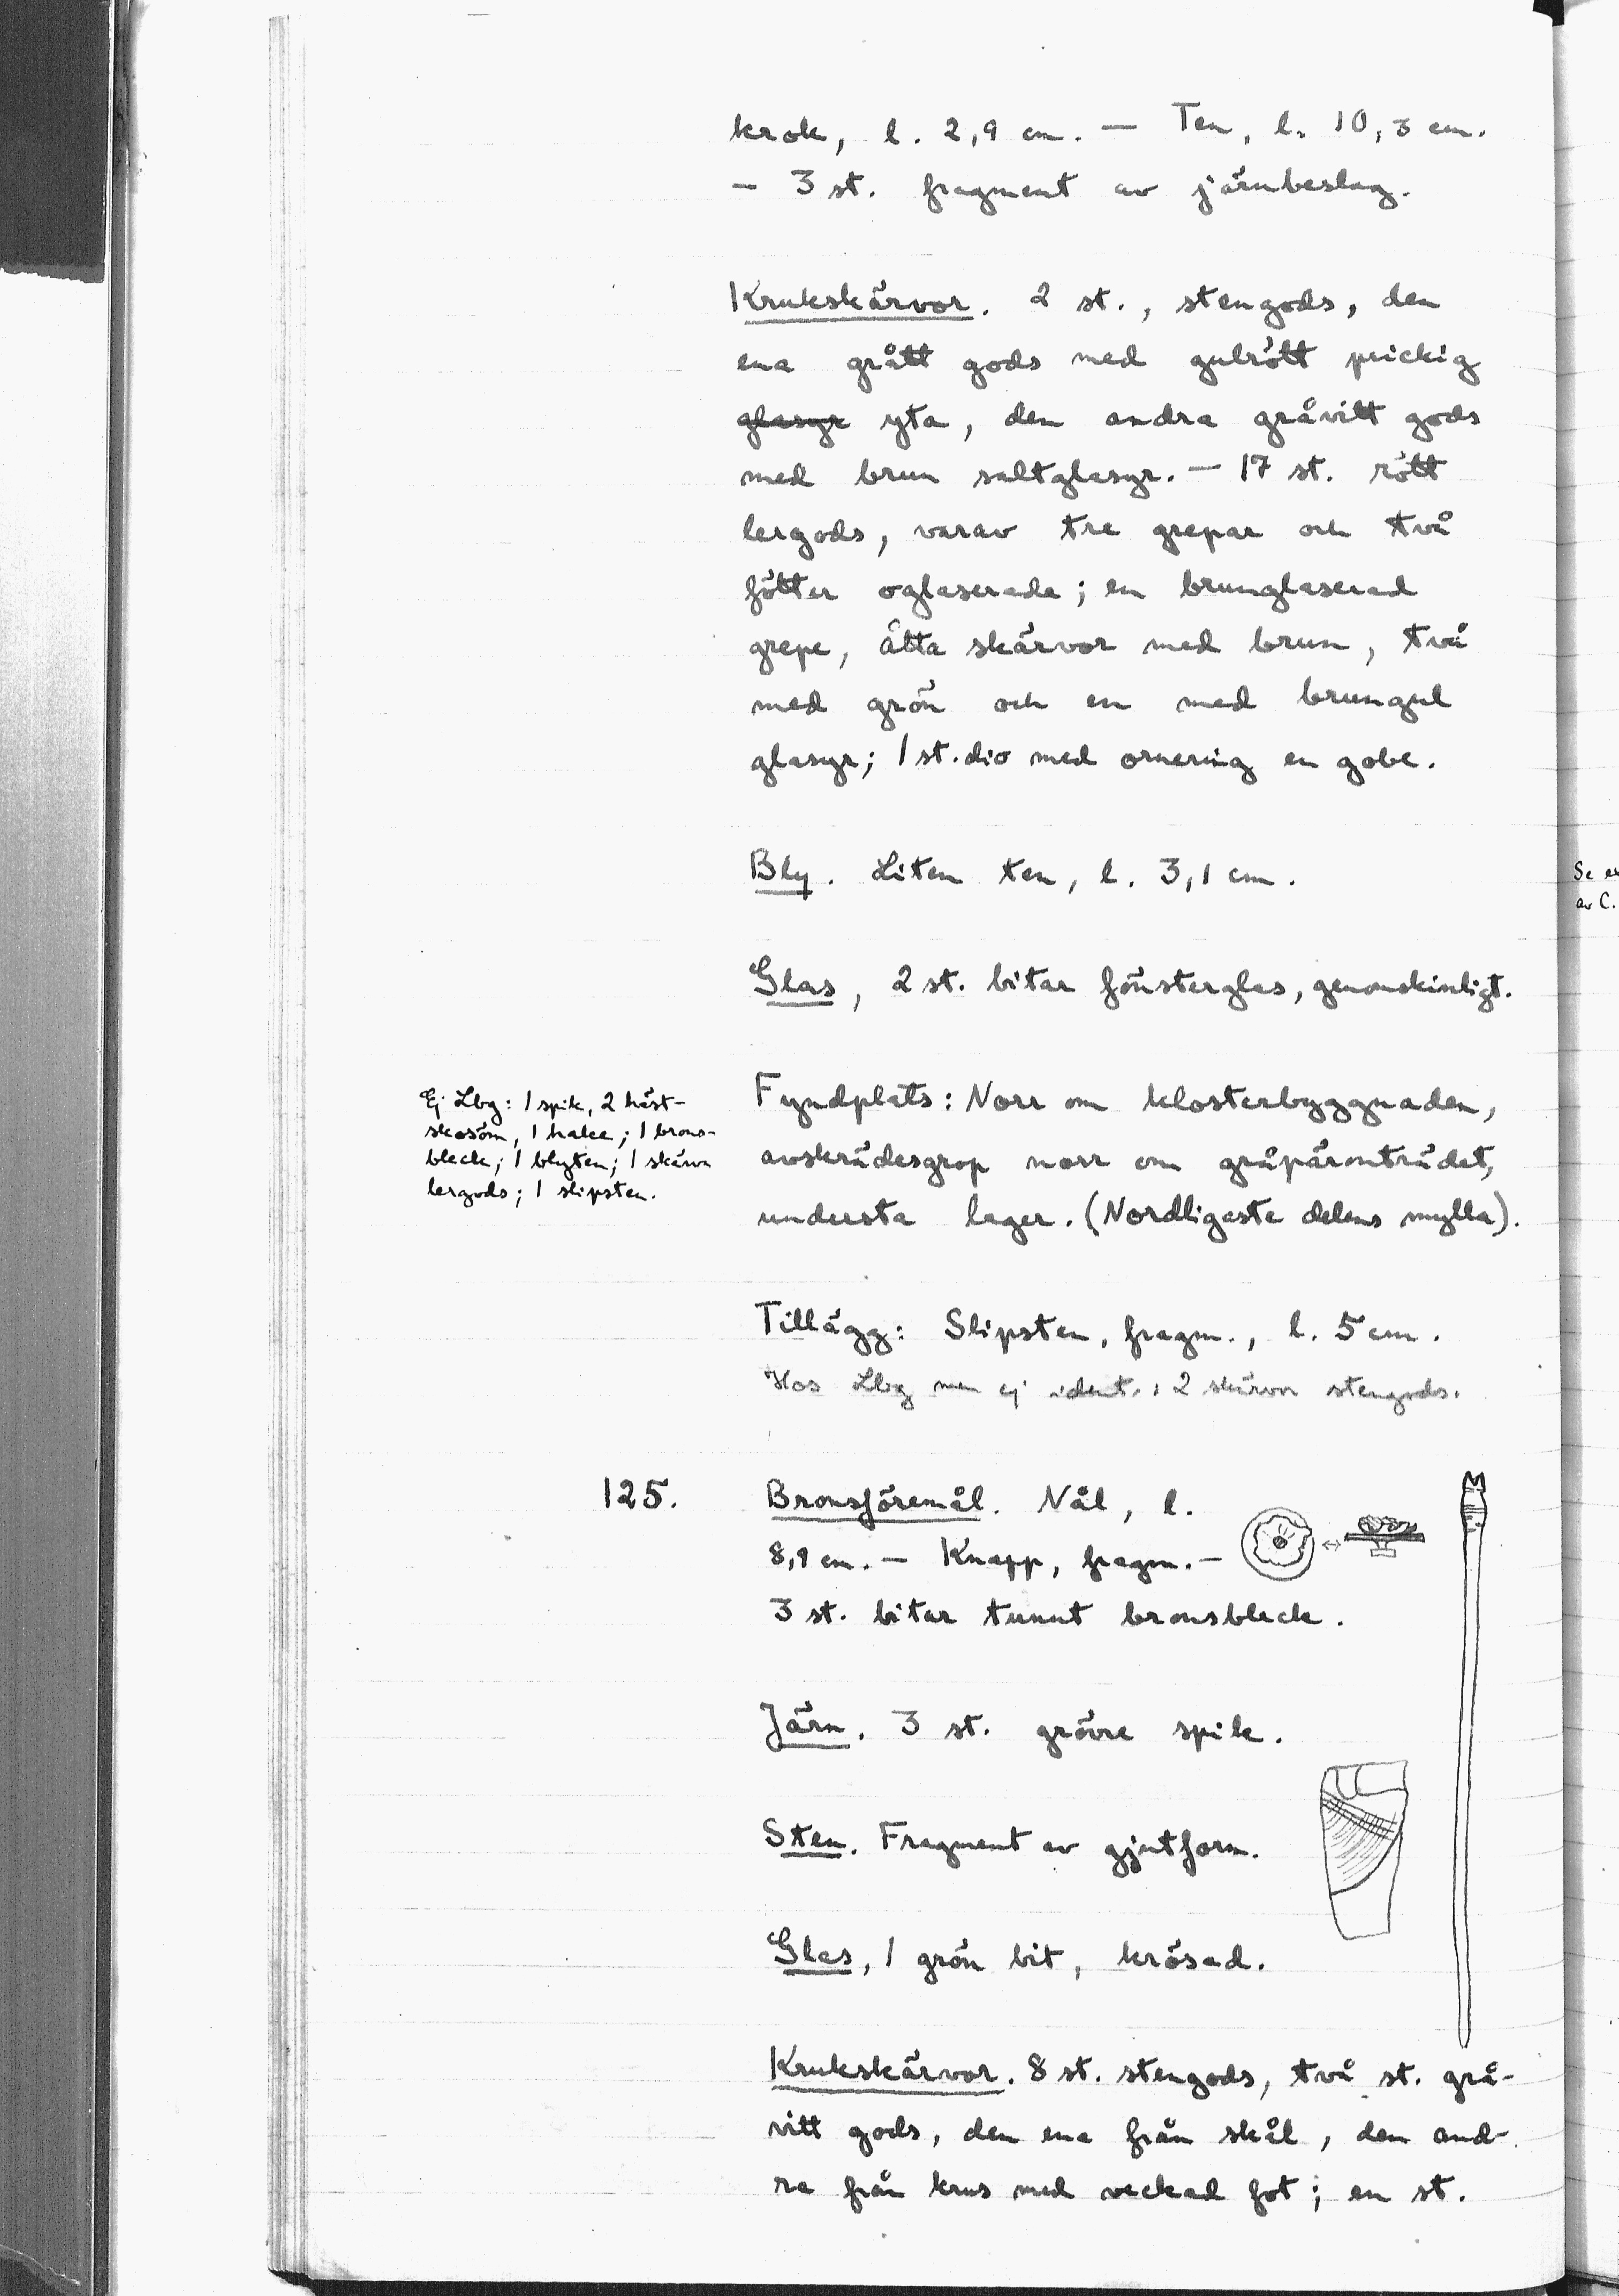 krok, l. 2,9 cm. — Ten, l. 10,3 cm.
— 3 st. fragment av järnbeslag.
Krukskärvor. 2 st., stengods, den
ena grått gods med gulrött prickig
glasyr yta, den andra gråvitt gods
med brun saltglasyr. — 17 st. rött
lergods, varav tre grepar och två
fötter oglaserade; en brunglaserad
grepe, åtta skärvor med brun, två
med grön och en med brungul
glasyr; 1 st. dio med ornering en gobe.
Bly. Liten ten, l. 3,1 cm.
Glas, 2 st. bitar fönsterglas, genomskinligt.
Ej Lbg: 1 spik, 2 häst-
skosöm, 1 hake; 1 brons-
bleck; 1 blyten; 1 skärva
lergods; 1 slipsten.
Fyndplats: Norr om klosterbyggnaden,
avskrädesgrop norr om gråpäronträdet,
understa lager. (Nordligaste delens mylla).
Tillägg: Slipsten, fragm., l. 5 cm.
Hos Lbg men ej ident.: 2 skärvor stengods.
125. Bronsföremål. Nål, l.
8,9 cm. — Knapp, fragm. —
3 st. bitar tunnt bronsbleck.
Järn. 3 st. grövre spik.
Sten. Fragment av gjutform.
Glas, 1 grön bit, krösad.
Krukskärvor. 8 st. stengods, två st. grå-
vitt gods, den ena från skål, den and-
ra från krus med veckad fot; en st.
Se
av C.